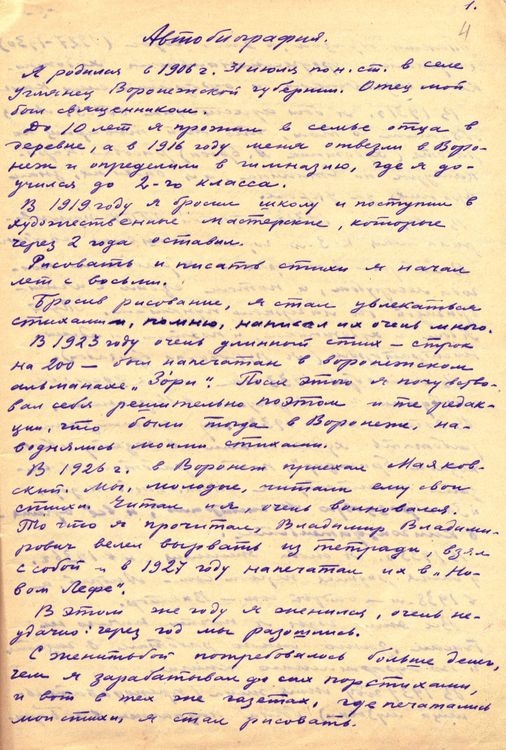 1.
4
Автобиография.
Я родился в 1906 г. 31 июля по н. ст. в селе
Углянец Воронежской губернии. Отец мой
был священником.
До 10 лет я прожил в семье отца в
деревне, а в 1916 году меня отвезли в Воро-
неж и определили в гимназию, где я до-
учился до 2-го класса.
В 1919 году я бросил школу и поступил в
художественные мастерские, которые
через 2 года оставил.
Рисовать и писать стихи я начал
лет с восьми.
Бросив рисование, я стал увлекаться
стихами, помню, написал их очень много.
В 1923 году очень длинный стих – строк
на 200 – был напечатан в воронежском
альманахе „Зори“. После этого я почувство-
вал себя решительно поэтом и те редак-
ции, что были тогда в Воронеже, на-
воднялись моими стихами.
В 1926 г. в Воронеж приехал Маяков-
ский. Мы, молодые, читали ему свои
стихи. Читал и я, очень волновался.
То что я прочитал, Владимир Владими-
рович велел вырвать из тетради, взял
с собой и в 1927 году напечатал их в „Но-
вом Лефе“.
В этом же году я женился, очень не-
удачно: через год мы разошлись.
С женитьбой потребовалось больше денег,
чем я зарабатывал до сих пор стихами,
и вот в тех же газетах, где печатались
мои стихи, я стал рисовать.